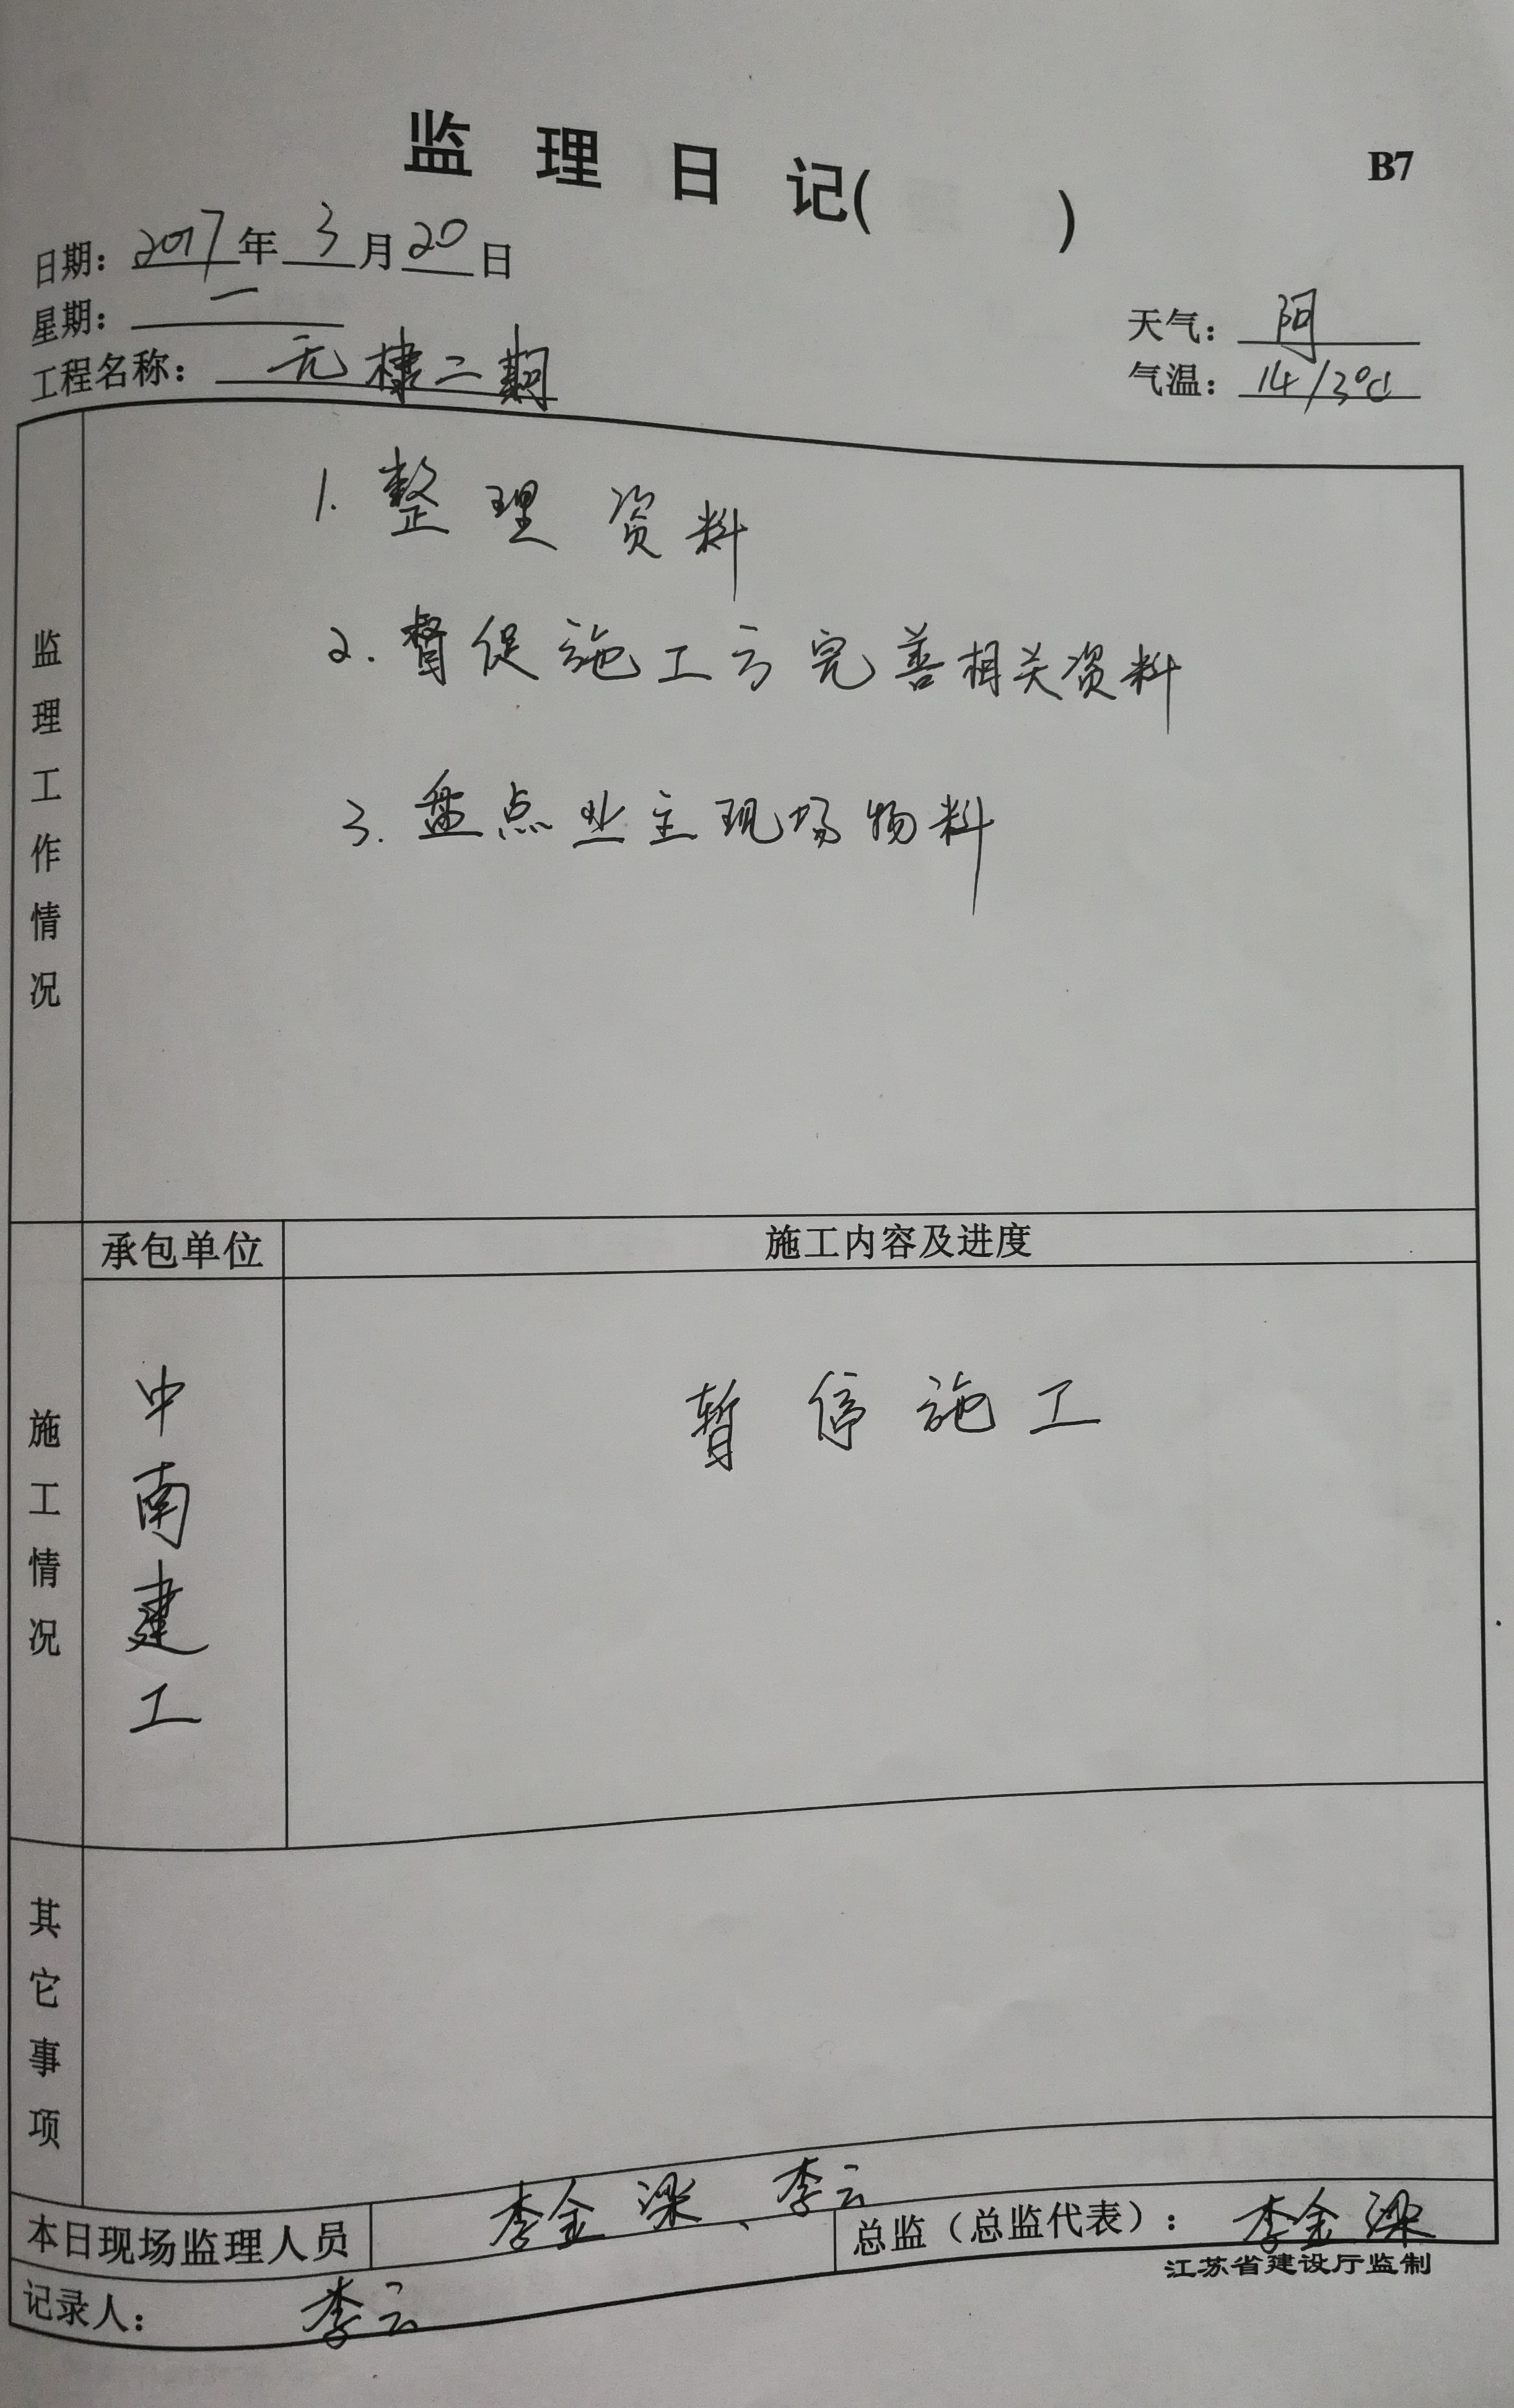 监理日记(          )
B7
日期：2017年3月20日
星期：一
天气：阴
工程名称：无棣二期
气温：14/3℃
监理工作情况
1. 整理资料
2. 督促施工方完善相关资料
3. 盘点业主现场物料
承包单位
施工内容及进度
施工情况
中南建工
暂停施工
其它事项
本日现场监理人员
李金梁、李云
总监（总监代表）：李金梁
记录人：李云
江苏省建设厅监制